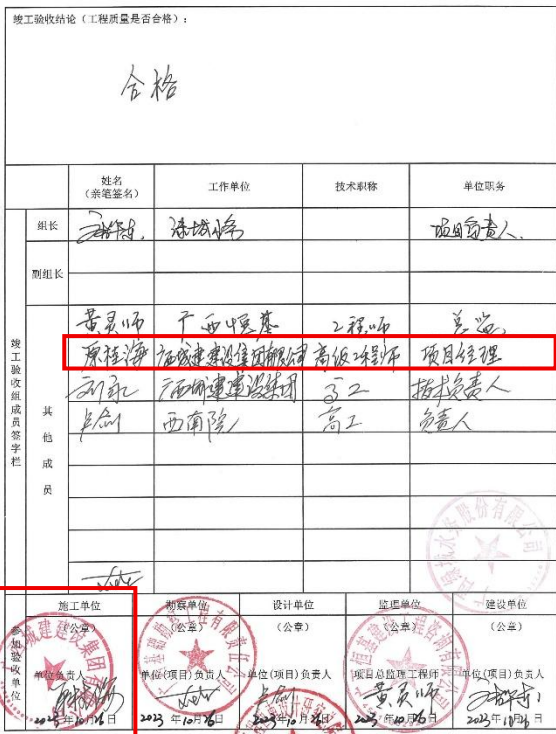 竣工验收结论（工程质量是否合格）：
合格
姓名
（亲笔签名）
工作单位
技术职称
单位职务
竣工验收组成员签字栏
组长
绿城水务
项目负责人.
副组长
其他成员
黄灵师 广西恒基 工程师 总监
原桂海 广西城建建设集团有限公司 高级工程师 项目经理
刘永 广西城建建设集团 高工 技术负责人
卢剑 西南院 高工 负责人
参加验收单位
施工单位
（公章）
单位负责人
2023年10月26日
勘察单位
（公章）
单位(项目)负责人
2023年10月26日
设计单位
（公章）
单位(项目)负责人
卢剑
2023年10月26日
监理单位
（公章）
项目总监理工程师
黄灵师
2023年10月26日
建设单位
（公章）
单位(项目)负责人
2023年10月26日